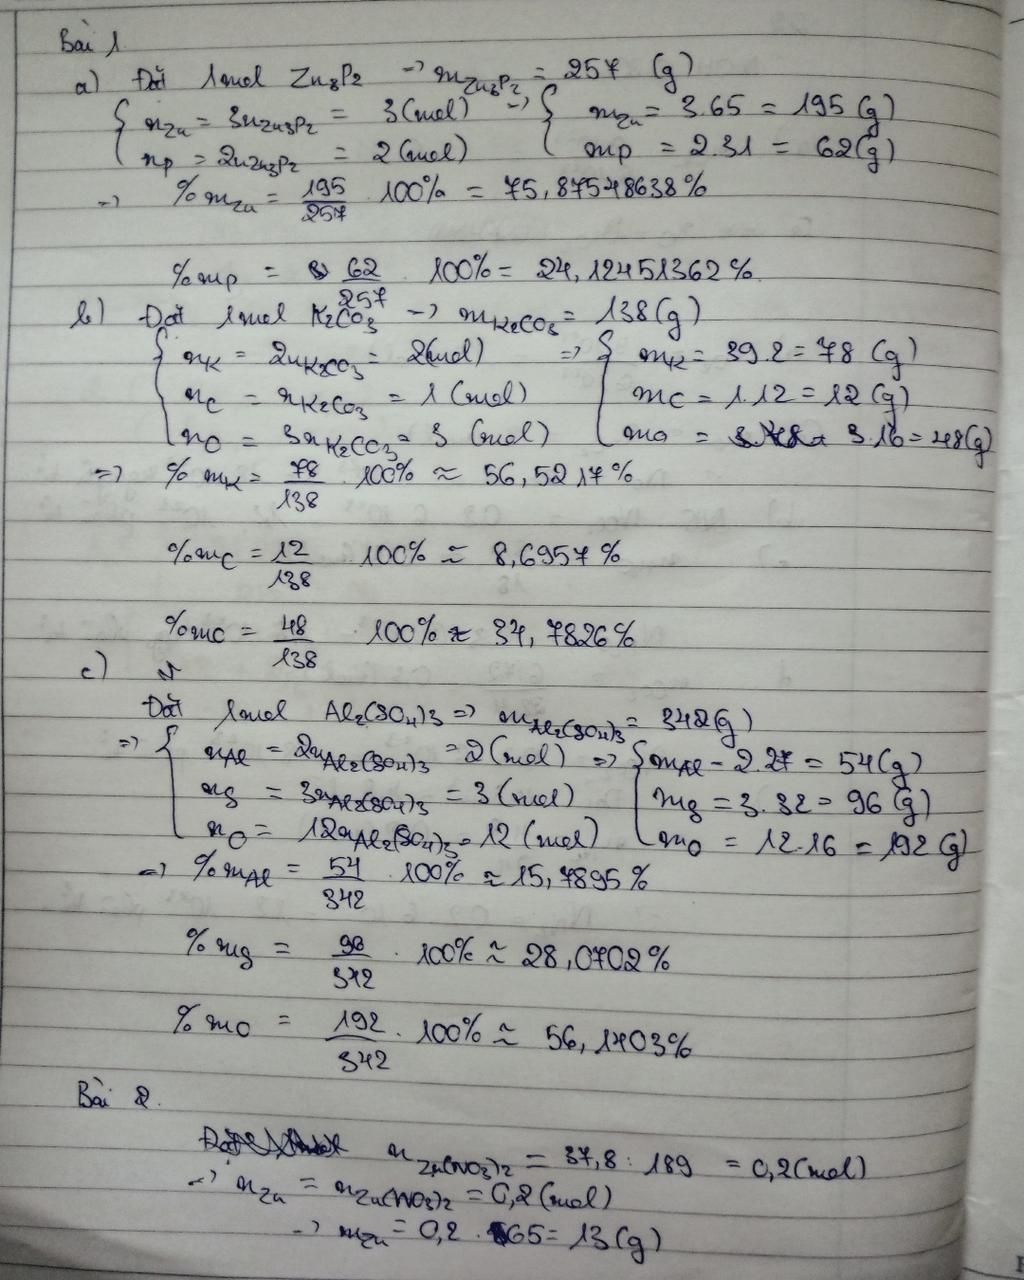 Bài 1
a) Đặt 1mol Zn3P2 → mZn3P2 = 257 (g)
{ nZn = 3nZn3P2 = 3 (mol) → { mZn = 3.65 = 195 (g)
nP = 2nZn3P2 = 2 (mol) mP = 2.31 = 62 (g)
→ % mZn = 195/257 . 100% = 75,87548638%
%mP = 62/257 . 100% = 24,12451362%
b) Đặt 1mol K2CO3 → mK2CO3 = 138 (g)
{ nK = 2nK2CO3 = 2(mol) => { mK = 39.2 = 78 (g)
nC = nK2CO3 = 1 (mol) mC = 1.12 = 12 (g)
nO = 3nK2CO3 = 3 (mol) mO = 3.16 = 48(g)
=> % mK = 78/138 . 100% ≈ 56,5217%
%mC = 12/138 100% ≈ 8,6957%
%mO = 48/138 . 100% ≈ 34,7826%
c)
Đặt 1mol Al2(SO4)3 => mAl2(SO4)3 = 342(g)
=> { nAl = 2nAl2(SO4)3 = 2 (mol) => { mAl = 2.27 = 54(g)
nS = 3nAl2(SO4)3 = 3 (mol) mS = 3.32 = 96 (g)
nO = 12nAl2(SO4)3 = 12 (mol) mO = 12.16 = 192 (g)
=> % mAl = 54/342 . 100% ≈ 15,7895%
% mS = 96/342 . 100% ≈ 28,0702%
% mO = 192/342 . 100% ≈ 56,1403%
Bài 2.
nZn(NO3)2 = 37,8 : 189 = 0,2(mol)
→ nZn = nZn(NO3)2 = 0,2(mol)
→ mZn = 0,2 . 65 = 13 (g)